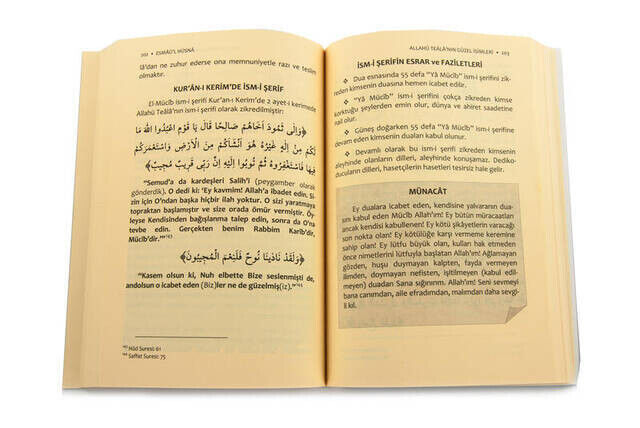 202 • ESMÂÜ'L HÜSNÂ
lâ'dan ne zuhur ederse ona memnuniyetle razı ve teslim
olmaktır.
KUR'ÂN-I KERİM'DE İSM-İ ŞERİF
El-Mûcîb ism-i şerifi Kur'an-ı Kerim'de 2 ayet-i kerimede
Allahü Teâlâ'nın ism-i şerifi olarak zikredilmiştir.
﴿وَاِلٰى ثَمُودَ اَخَاهُمْ صَالِحًا قَالَ يَا قَوْمِ اعْبُدُوا اللّٰهَ مَا
لَكُمْ مِنْ اِلٰهٍ غَيْرُهُ هُوَ اَنْشَاَكُمْ مِنَ الْاَرْضِ وَاسْتَعْمَرَكُمْ
فِيهَا فَاسْتَغْفِرُوهُ ثُمَّ تُوبُوا اِلَيْهِ اِنَّ رَبِّى قَرِيبٌ مُجِيبٌ﴾
"Semud'a da kardeşleri Salih'i (peygamber olarak
gönderdik). O dedi ki: 'Ey kavmim! Allah'a ibadet edin. Si-
zin için O'ndan başka hiçbir ilah yoktur. O sizi yaratmaya
topraktan başlamıştır ve size orada ömür vermiştir. Öy-
leyse Kendisinden bağışlanma talep edin, sonra da O'na
tevbe edin. Gerçekten benim Rabbim Karîb'dir,
Mücîb'dir.'"¹⁴³
﴿وَلَقَدْ نَادٰينَا نُوحٌ فَلَنِعْمَ الْمُجِيبُونَ﴾
"Kasem olsun ki, Nuh elbette Bize seslenmişti de,
andolsun o icabet eden (Biz)ler ne de güzelmiş(iz)."¹⁴⁴
¹⁴³ Hûd Suresi: 61
¹⁴⁴ Saffat Suresi: 75
ALLAHÜ TEÂLÂ'NIN GÜZEL İSİMLERİ • 203
İSM-İ ŞERİFİN ESRAR ve FAZİLETLERİ
❖ Dua esnasında 55 defa "Yâ Mücîb" ism-i şerifini zik-
reden kimsenin duasına hemen icabet edilir.
❖ "Yâ Mücîb" ism-i şerifini çokça zikreden kimse
korktuğu şeylerden emin olur, dünya ve ahiret saadetine
nail olur.
❖ Güneş doğarken 55 defa "Yâ Mücîb" ism-i şerifini
zikretmeye devam eden kimsenin duaları kabul olunur.
❖ Devamlı olarak bu ism-i şerifi zikreden kimsenin
aleyhinde olanların dilleri, aleyhinde konuşamaz. Dediko-
ducuların dilleri, hasetçilerin hasetleri tesirsiz hale gelir.
MÜNACÂT
Ey dualara icabet eden, kendisine yalvaranın dua-
sını kabul eden Mücîb Allah'ım! Ey bütün müracaatları
ancak kendisi kabullenen! Ey kötü şikâyetlerin varacağı
son nokta olan! Ey kötülüğe karşı vermeme keremine
sahip olan! Ey lütfu büyük olan, kulları hak etmeden
önce nimetlerini lütfuyla başlatan Allah'ım! Ağlamayan
gözden, huşu duymayan kalpten, fayda vermeyen
ilimden, doymayan nefisten, işitilmeyen (kabul edil-
meyen) duadan Sana sığınırım. Allah'ım! Seni sevmeyi
bana canımdan, aile efradımdan, malımdan daha sevgi-
li kıl.